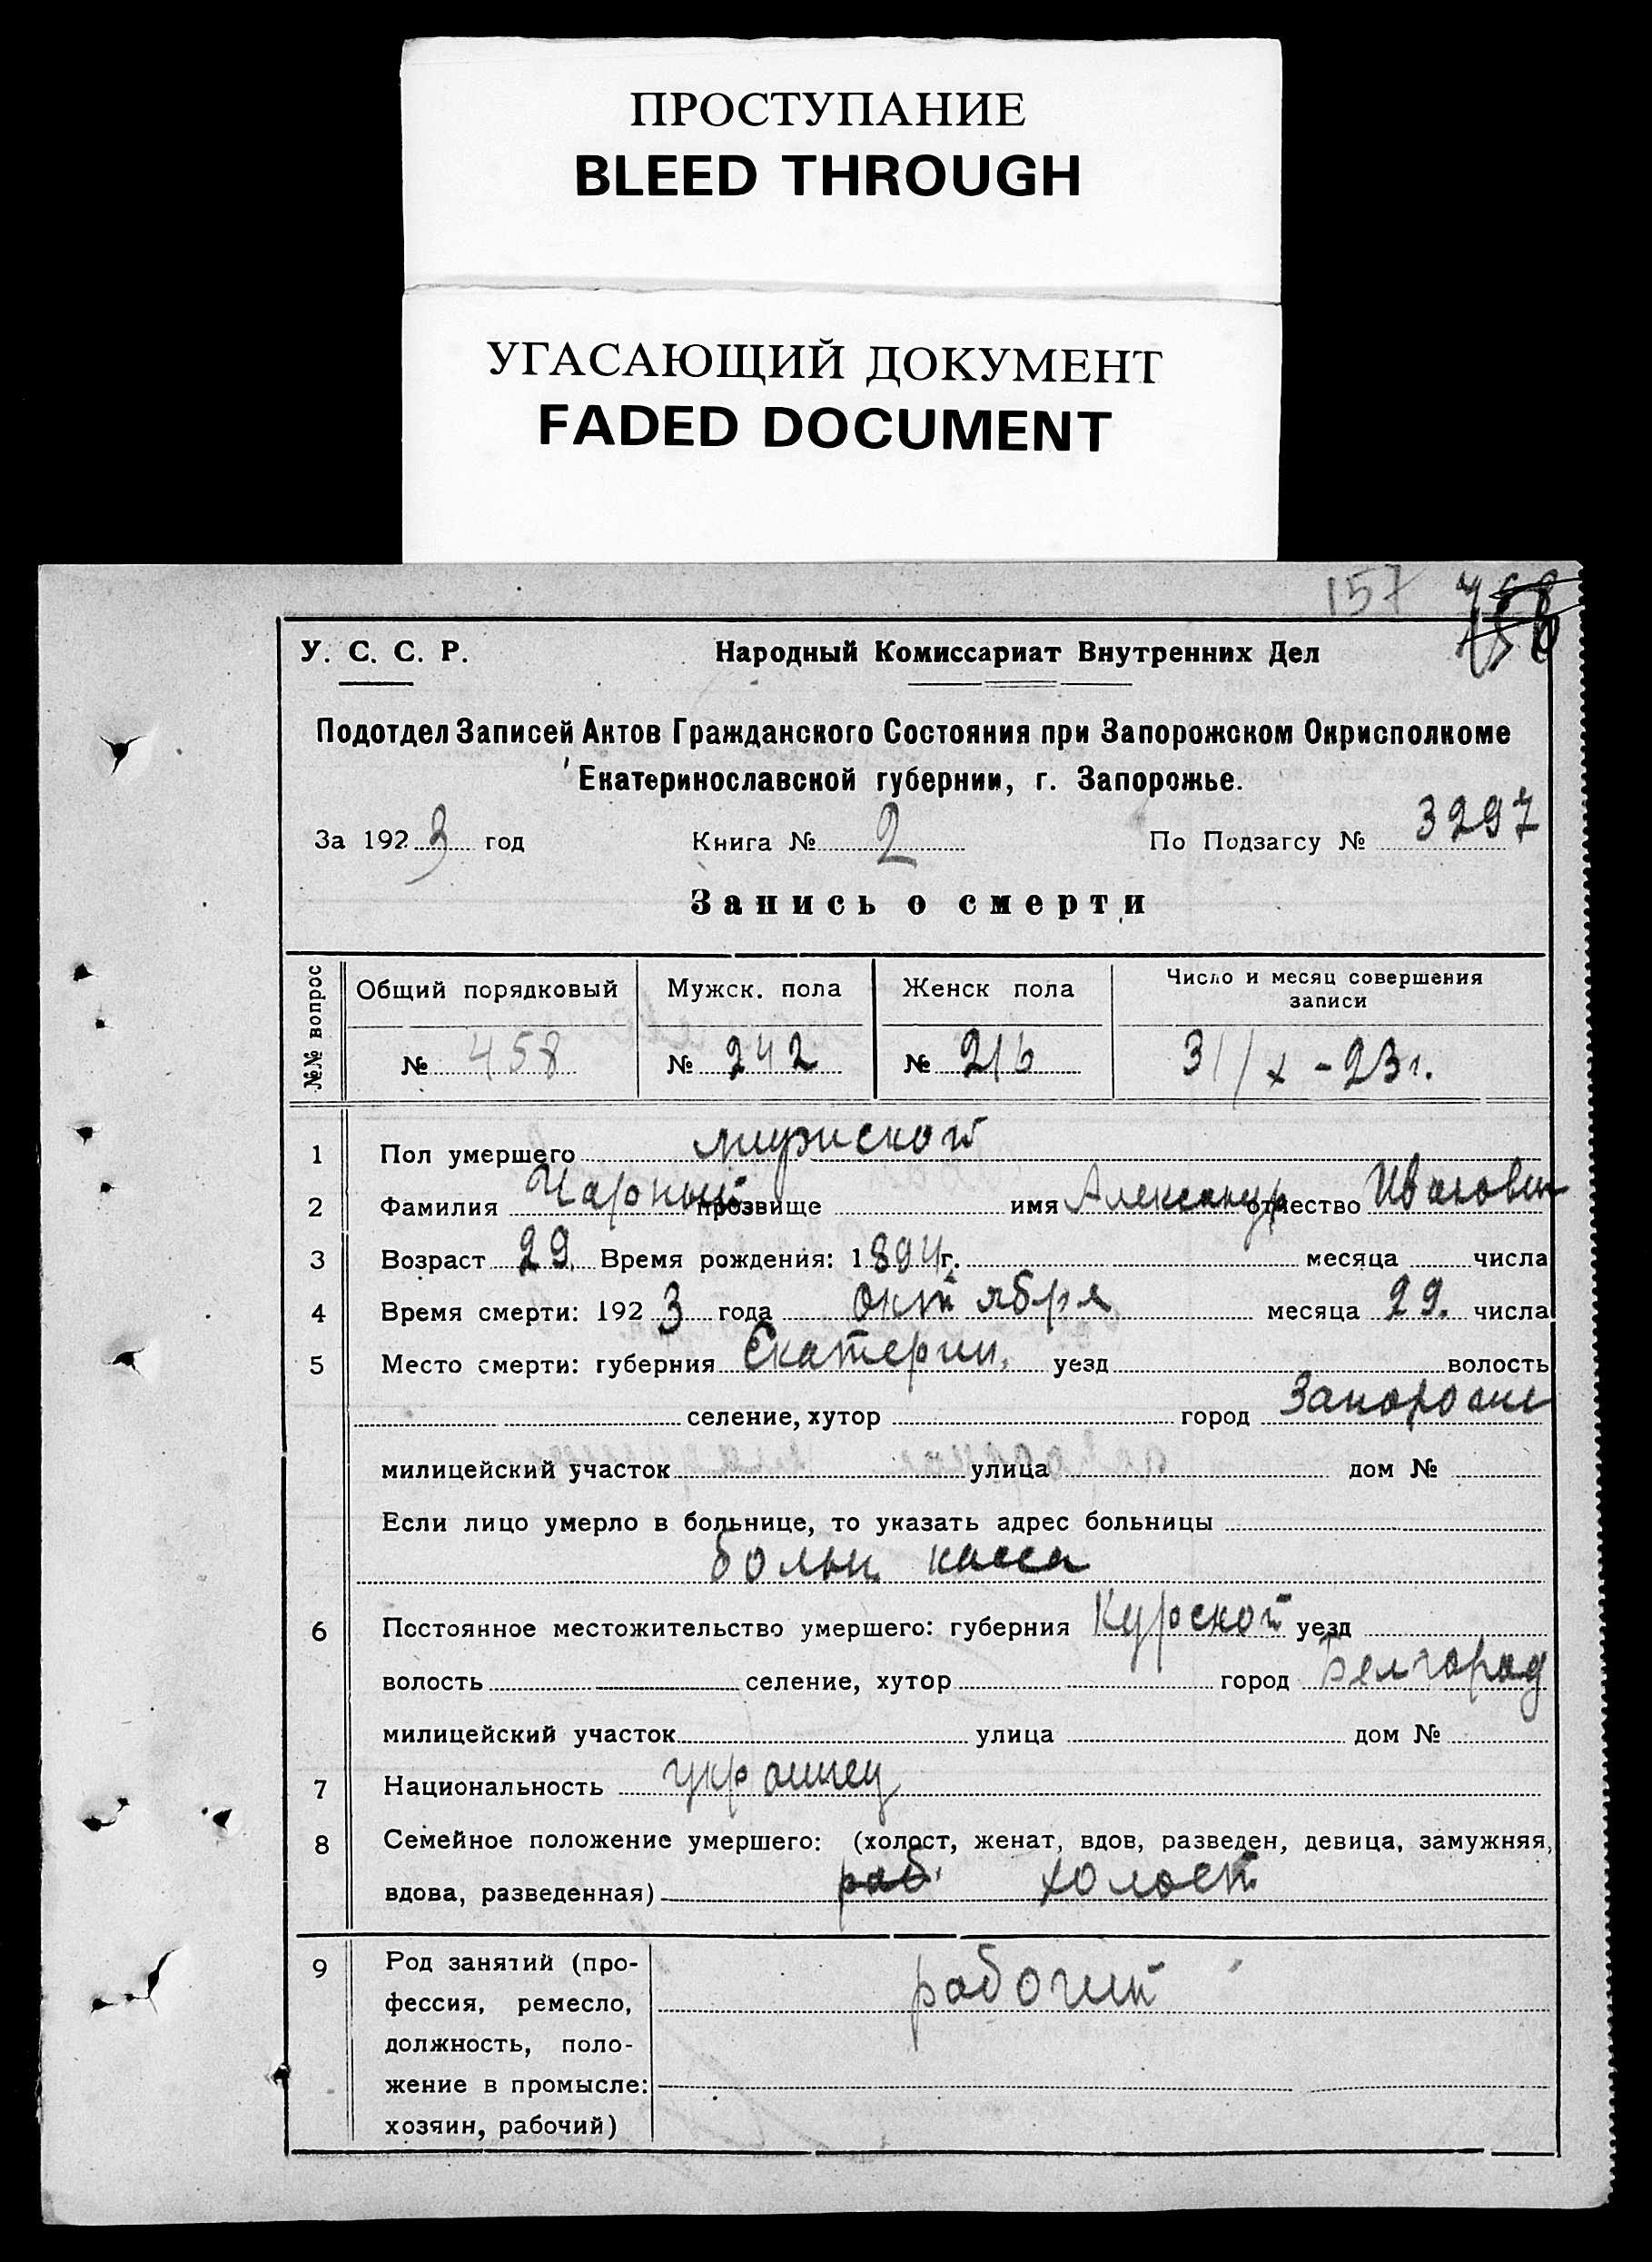 ПРОСТУПАНИЕ
BLEED THROUGH
УГАСАЮЩИЙ ДОКУМЕНТ
FADED DOCUMENT
157 458
У. С. С. Р. Народный Комиссариат Внутренних Дел
Подотдел Записей Актов Гражданского Состояния при Запорожском Окрисполкоме
Екатеринославской губернии, г. Запорожье.
За 1923 год Книга № 2 По Подзагсу № 3297
Запись о смерти
№№ вопрос
Общий порядковый Мужск. пола Женск пола Число и месяц совершения
записи
№ 458 № 242 № 216 31/x - 23 г.
1 Пол умершего мужской
2 Фамилия Чарный прозвище имя Александр отчество Иванович
3 Возраст 29. Время рождения: 1894 г. месяца числа
4 Время смерти: 1923 года октября месяца 29. числа
5 Место смерти: губерния Екатерин. уезд волость
селение, хутор город Запорожие
милицейский участок улица дом №
Если лицо умерло в больнице, то указать адрес больницы
больн. касса
6 Постоянное местожительство умершего: губерния Курской уезд
волость селение, хутор город Белгород
милицейский участок улица дом №
7 Национальность украинец
8 Семейное положение умершего: (холост, женат, вдов, разведен, девица, замужняя,
вдова, разведенная) раб. холост
9 Род занятий (про-
фессия, ремесло,
должность, поло-
жение в промысле:
хозяин, рабочий)
рабочий